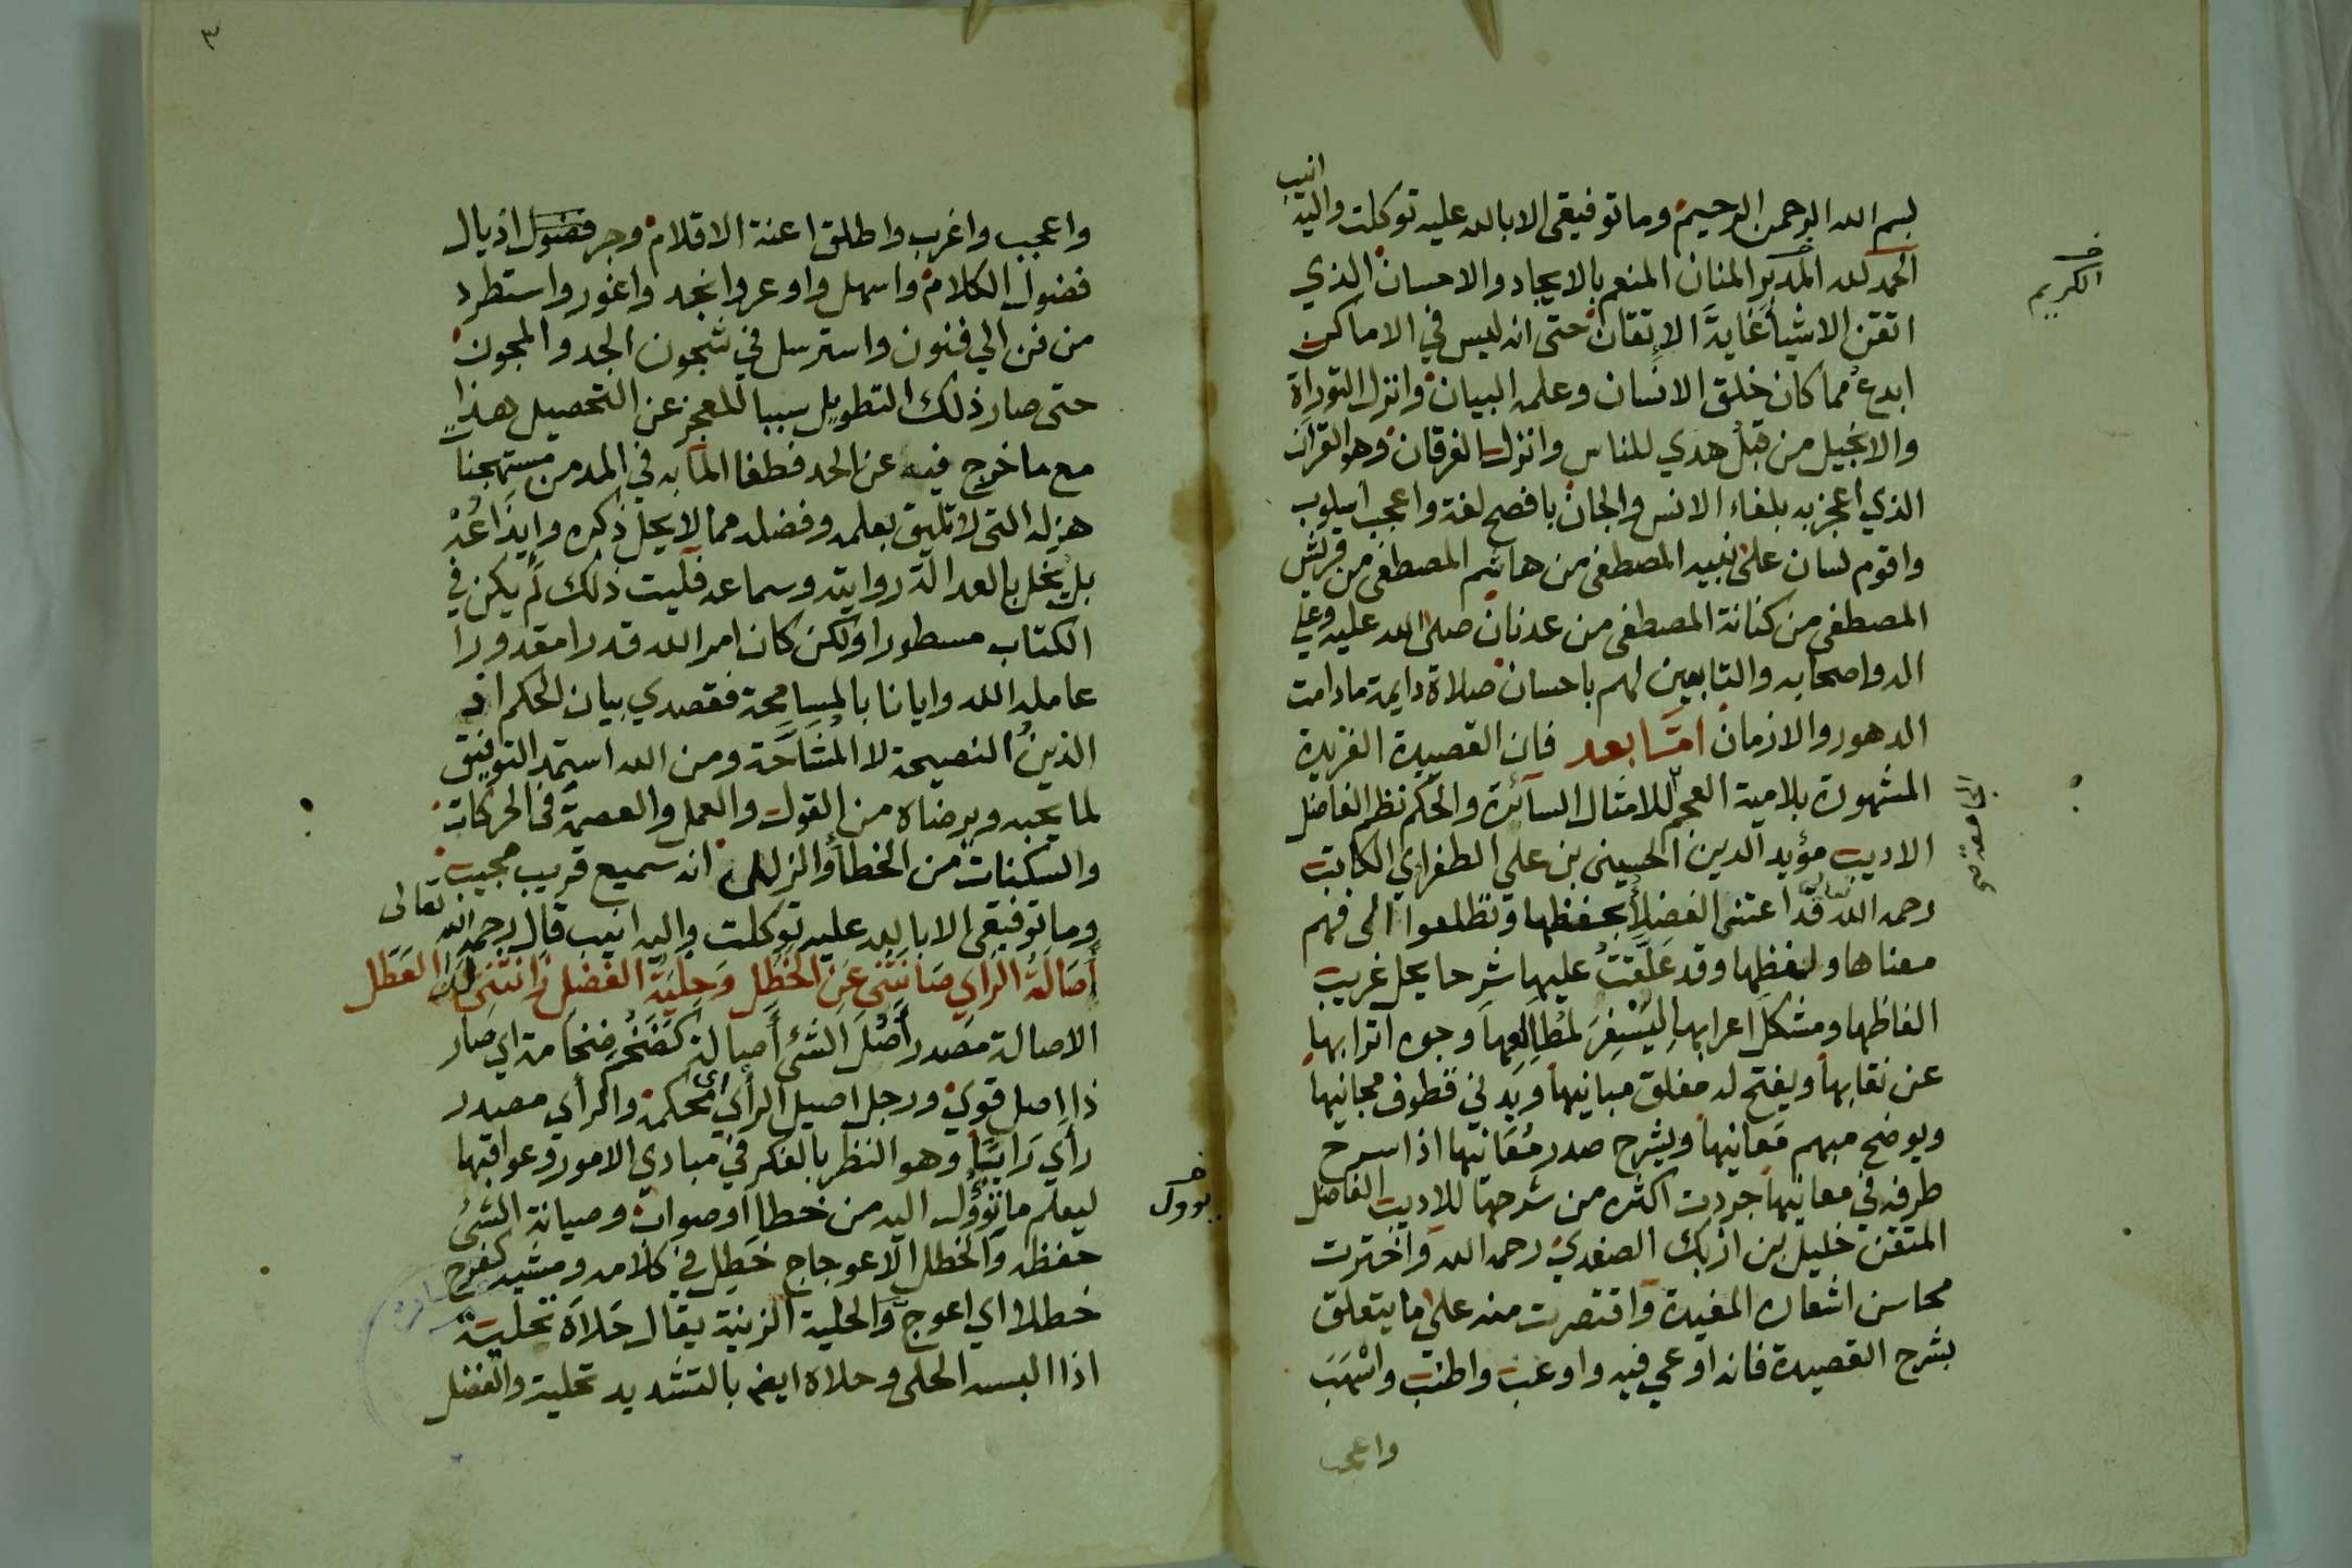 بسم الله الرحمن الرحيم وما توفيقى الا بالله عليه توكلت واليه
انيب
الحمد لله المدبر المنان المنعم بالايجاد والاحسان الذي
الكريم
اتقن الاشيأ غاية الاتقان حتى انه ليس في الاماكن
ابدع مما كان خلق الانسان وعلمه البيان وانزل التوراة
والانجيل من قبل هدي للناس وانزل الفرقان وهو القرآن
الذي اعجز به بلغاء الانس والجان بافصح لغة واعجب اسلوب
واقوم لسان على نبيه المصطفى من هاشم المصطفى من قريش
المصطفى من كنانة المصطفى من عدنان صلى الله عليه وعلى
اله واصحابه والتابعين لهم باحسان صلاة دايمة ما دامت
الدهور والازمان امّا بعد فان القصيدة الفريدة
المشهورة بلامية العجم للامثال السآئرة والحكم نظم الفاضل
الاديب مؤيد الدين الحسينى بن علي الطغراي الكاتب
رحمه الله تعالى قد اعتنى الفضلأ بحفظها وتطلعوا الى فهم
معناها ولفظها وقد علقت عليها شرحا يحل غريب
الفاظها ومشكل اعرابها ليسفر لمطالعها وجوه اترابها
عن نقابها ويفتح له مغلق مبانيها ويدني قطوف مجانيها
ويوضح مبهم معانيها ويشرح صدر معانيها اذا سرح
طرفه في معانيها جردت اكثره من شرحها للاديب الفاضل
المتقن خليل بن ازبك الصفدي رحمه الله واخترت
محاسن اشعاره المفيدة واقتصرت منه على ما يتعلق
بشرح القصيدة فانه اوعي فيه واوعب واطنب واسهب
واعجب
٣
واعجب واغرب واطلق اعنة الاقلام وجر فضول اذيال
فضول الكلام واسهل واوعر وانجد واغور واستطرد
من فن الي فنون واسترسل في شجون الجد والمجون
حتى صار ذلك التطويل سببا للعجز عن التحصيل هذا
مع ما خرج فيه عن الحد فطفا الما به في المد من مستهجنا
هزله التى لا تليق بعلمه وفضله مما لا يحل ذكره وايداعه
بل يخل بالعدالة روايته وسماعه فليت ذلك لم يكن في
الكتاب مسطورا ولكن كان امر الله قدرا مقدورا
عامله الله وايانا بالمسامحة فقصدي بيان الحكم اذ
الدين النصيحة لا المشاحة ومن الله استمد التوفيق
لما يحبه ويرضاه من القول والعمل والعصمة في الحركات
والسكنات من الخطأ والزلل انه سميع قريب مجيب
وما توفيقى الا بالله عليه توكلت واليه انيب قال رحمه الله تعالى
أصالة الراي صانتنى عن الخطل وحلية الفضل زانتنى لدى العطل
الاصالة مصدر أصل الشئ أصالة كضخم ضخامة اي صار
ذا اصل قوي ورجل اصيل الرأي اى محكمه والرأي مصدر
رأي رايًا وهو النظر بالفكر في مبادي الامور وعواقبها
ليعلم ما تؤول اليه من خطا او صواب وصيانة الشئ
يوول
حفظه والخطل الاعوجاج خطل في كلامه ومشيه كفرح
خطلا اي اعوج والحلية الزينة يقال حلاه تحلية
اذا البسه الحلى وحلاه ايضا بالتشديد تحلية والفضل